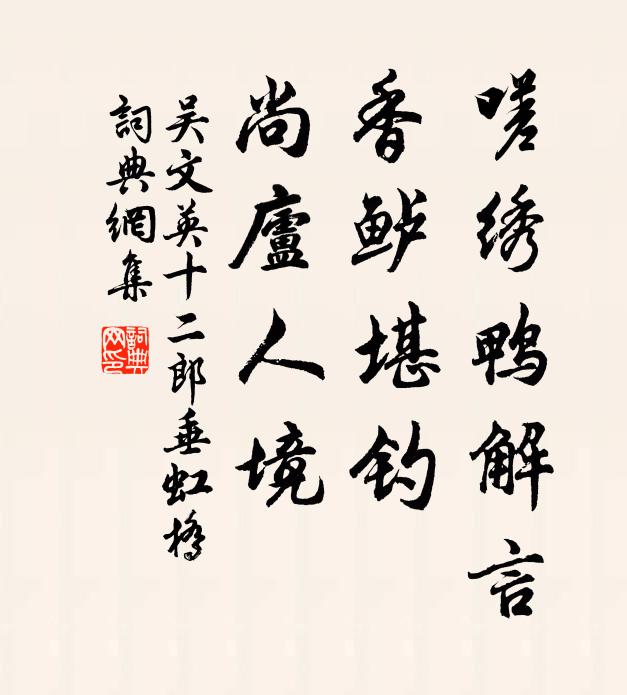 嗟绣鸭解言
香鲈堪钓
尚廬人境
吴文英十二郎垂虹橋
詞典網集
詞典網印